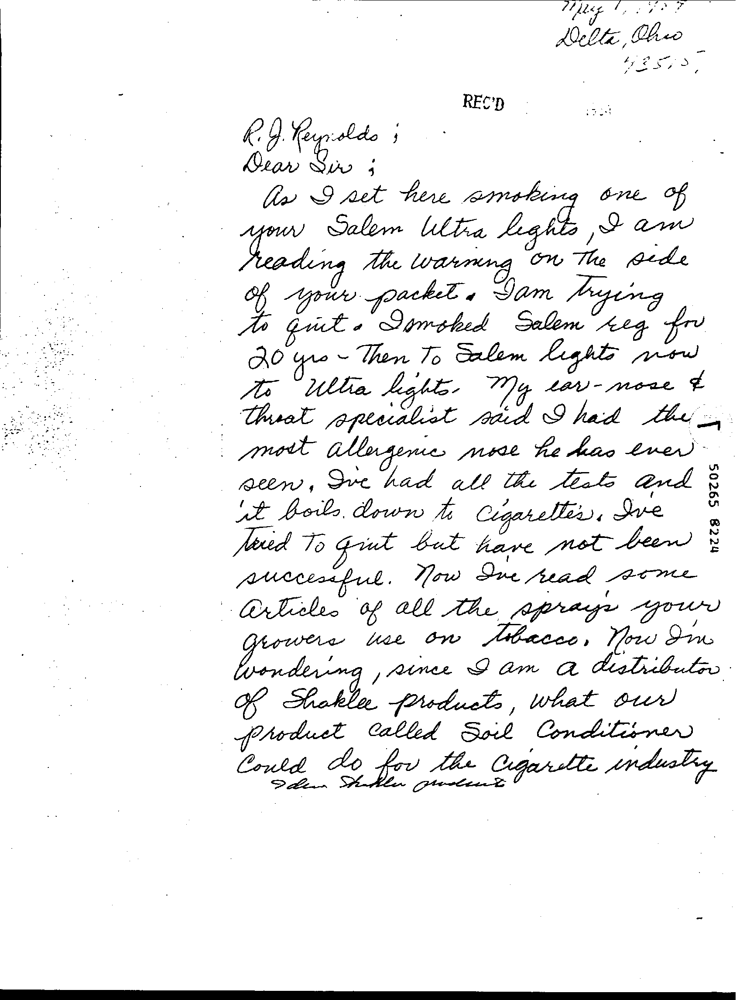 Delta, Ohio
43515,
REC'D
R. J. Reynolds ;
Dear Sir ;
As I set here smoking one of
your Salem Ultra lights, I am
reading the warning on the side
of your packet. I am trying
to quit. I smoked Salem reg for
20 yrs - Then To Salem lights now
to Ultra lights. My ear-nose &
throat specialist said I had the
most allergenic nose he has ever
seen. I've had all the tests and
it boils down to Cigarettes. I've
tried To quit but have not been
successful. Now I've read some
articles of all the spray's your
growers use on tobacco. Now I'm
wondering, since I am a distributor
of Shaklee products, what our
product called Soil Conditioner
Could do for the Cigarette industry
50265 8224